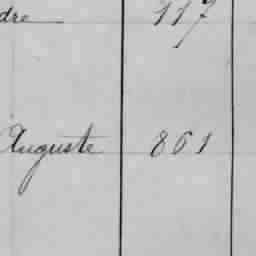 dre 117
Auguste 861